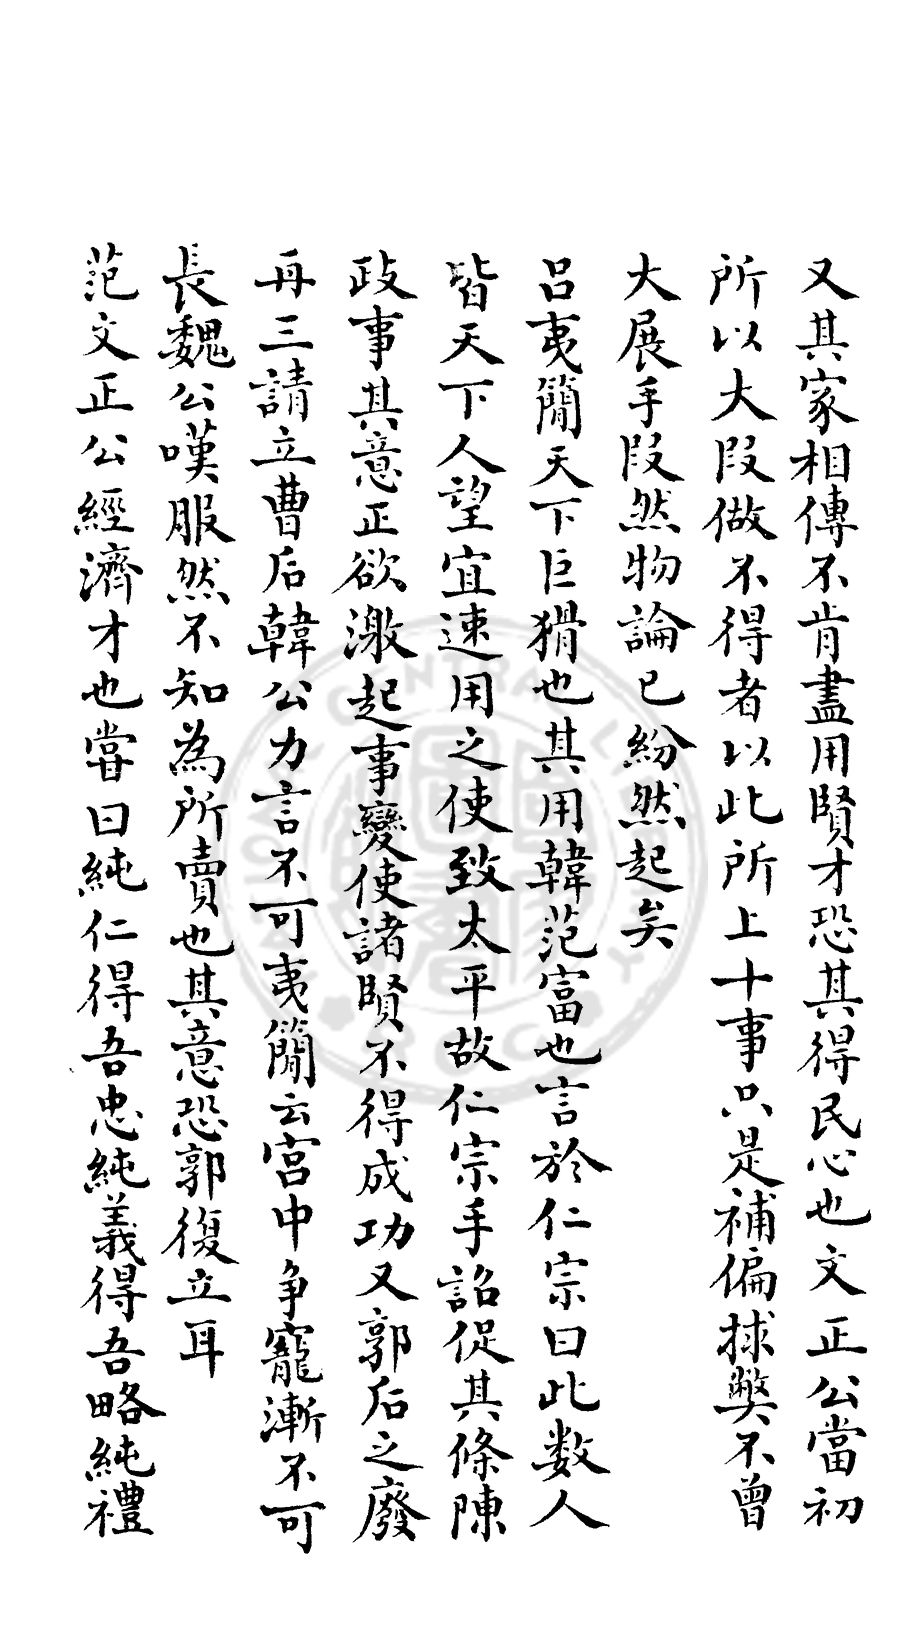 又其家相傳不肯盡用賢才恐其得民心也文正公當初
所以大段做不得者以此所上十事只是補偏捄獘不曾
大展手段然物論已紛然起矣
呂夷簡天下巨猾也其用韓范富也言於仁宗曰此数人
皆天下人望宜速用之使致太平故仁宗手詔促其條陳
政事其意正欲激起事變使諸賢不得成功又郭后之廢
再三請立曹后韓公力言不可夷簡云宮中争寵漸不可
長魏公嘆服然不知為所賣也其意恐郭復立耳
范文正公經濟才也嘗曰純仁得吾忠純義得吾略純禮